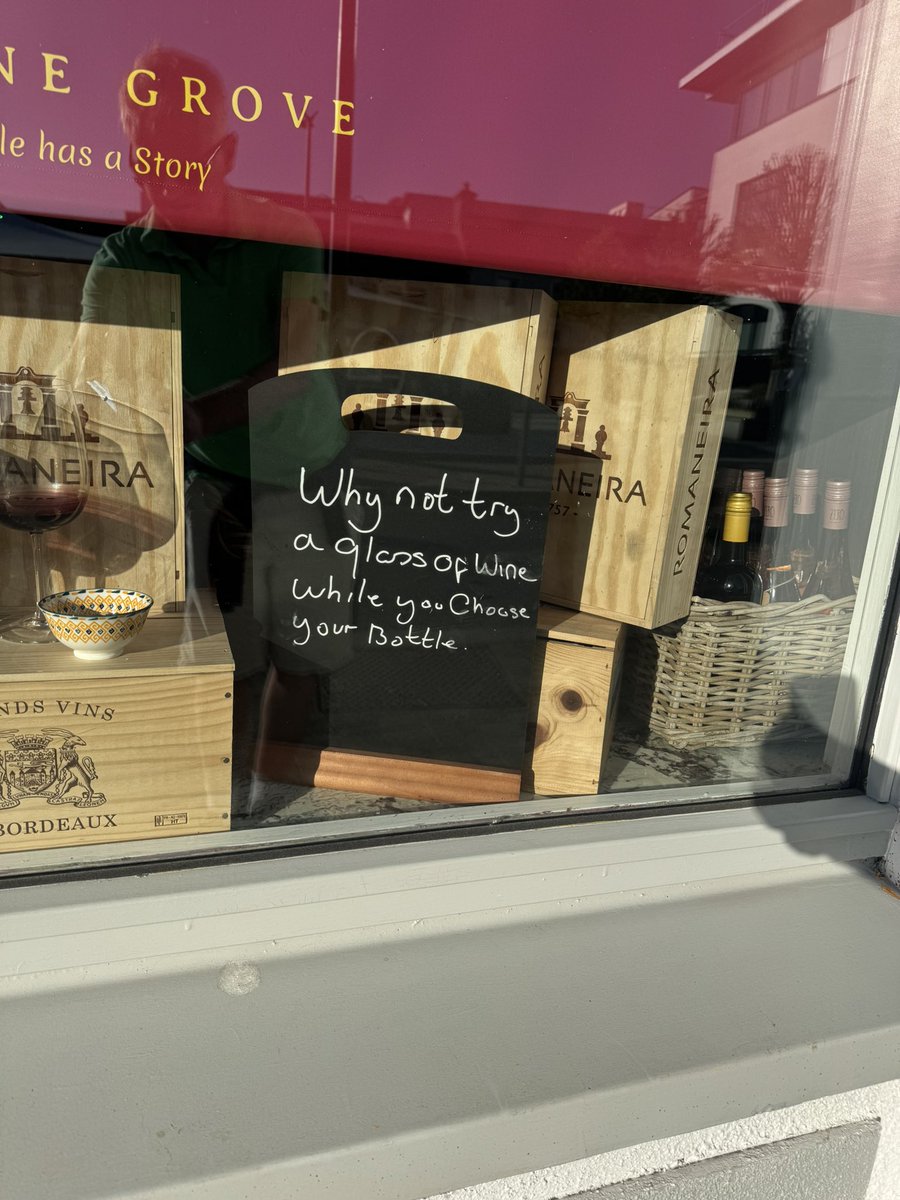 NE GROVE
le has a Story
ANEIRA
Why not try
a glass of Wine
while you Choose
your Bottle.
ANEIRA
757 -
ROMANEIRA
NDS VINS
BORDEAUX